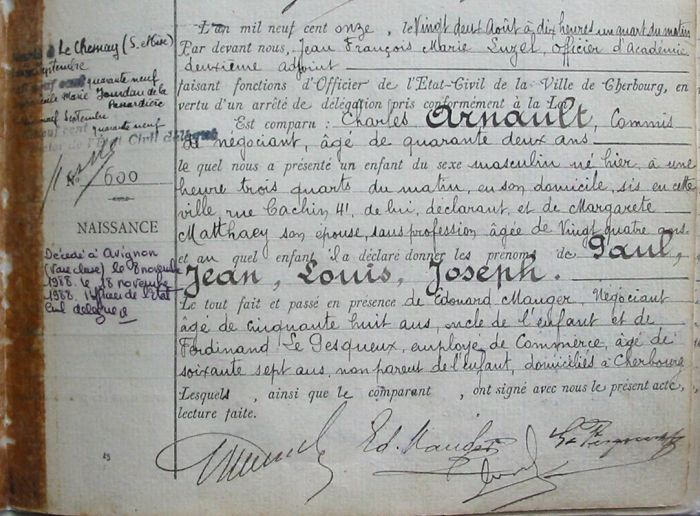 Le Chesnay (S. et Oise)
septembre
quarante neuf
Marie Jourdan de la
Passardière
Septembre
quarante neuf
de l'Etat Civil délégué
No 600
NAISSANCE
Décédé à Avignon
(Vaucluse) le 8 novembre
1988. le 18 novembre
1988. de l'Etat
Civil délégué
L'an mil neuf cent onze, le Vingt deux Août à dix heures un quart du matin
Par devant nous, Jean François Marie Luzel, officier d'Académie
deuxième adjoint
faisant fonctions d'Officier de l'Etat-Civil de la Ville de Cherbourg, en
vertu d'un arrêté de délégation pris conformément à la Loi,
Est comparu : Charles Arnault, Commis
de négociant, âgé de quarante deux ans
le quel nous a présenté un enfant du sexe masculin né hier, à une
heure trois quarts du matin, en son domicile, sis en cette
ville rue Cachin 41, de lui, déclarant, et de Margarete
Matthaey son épouse, sans profession âgée de Vingt quatre ans
et au quel enfant il a déclaré donner les prénoms de Paul,
Jean, Louis, Joseph.
Le tout fait et passé en présence de Edouard Mauger, Négociant
âgé de cinquante huit ans, oncle de l'enfant et de
Ferdinand Le Gesqueux, employé de Commerce, âgé de
soixante sept ans, non parent de l'enfant, domiciliés à Cherbourg
Lesquels, ainsi que le comparant, ont signé avec nous le présent acte,
lecture faite.
Ed. Mauger